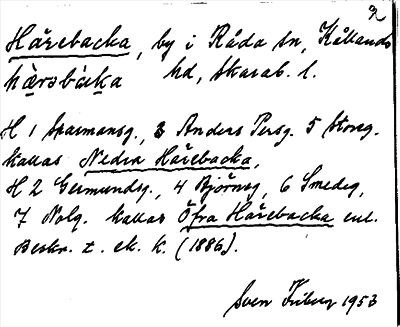 2
Härebacka, by i Råda sn, Kållands
hærsbàcka hd, Skarab. l.
H 1 Sparmansg., 3 Anders Persg. 5 Storeg.
kallas Nedra Härebacka,
H 2 Germundsg., 4 Björnsg, 6 Smedsg,
7 Nolg. kallas Öfra Härebacka enl.
Beskr. t. ek. k. (1886).
Sven Friberg 1953